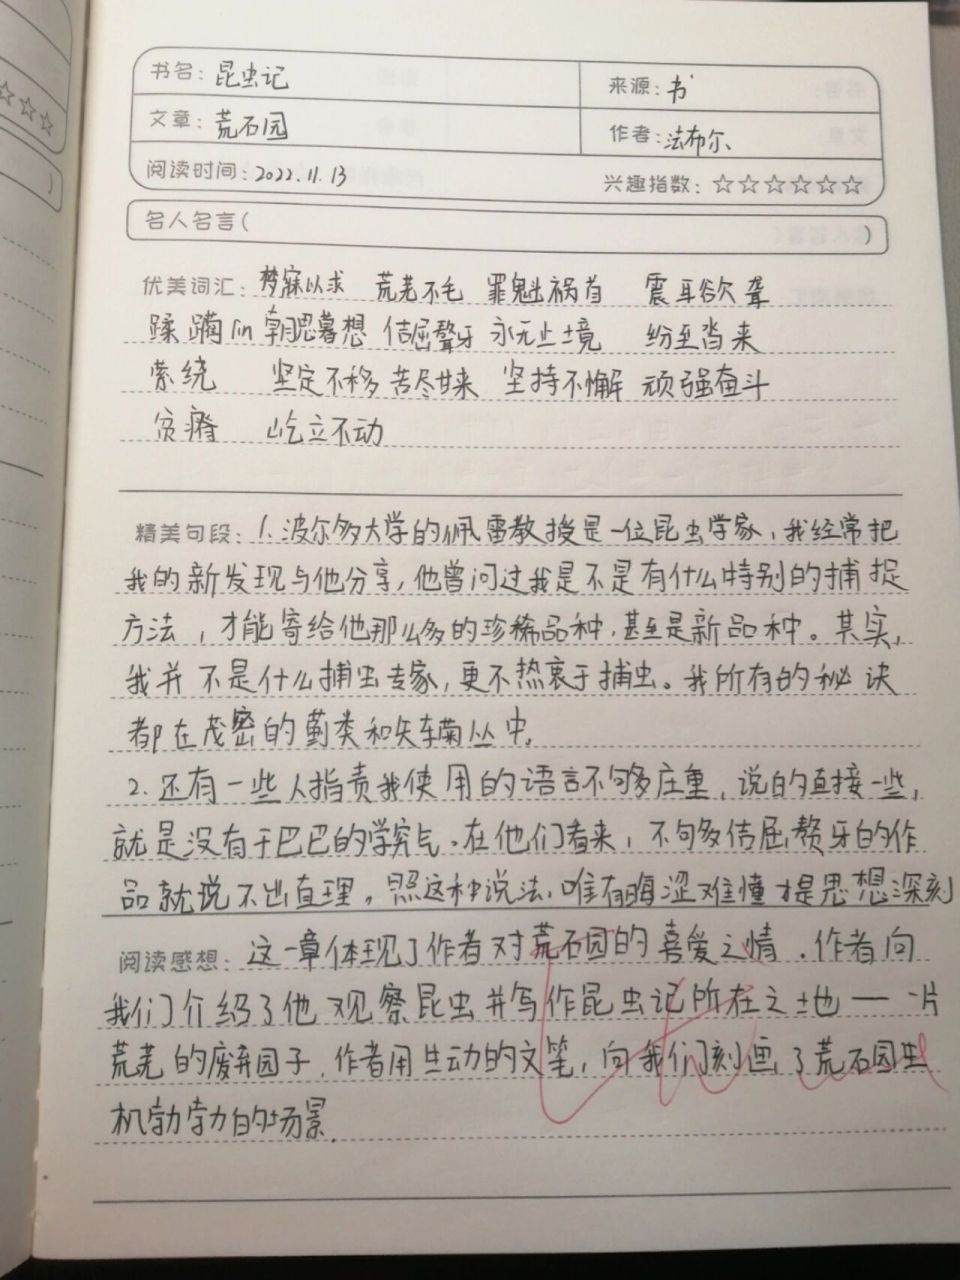 书名：昆虫记
来源：书
文章：荒石园
作者：法布尔
阅读时间：2022.11.13
兴趣指数：☆☆☆☆☆☆
名人名言（ ）
优美词汇：梦寐以求 荒芜不毛 罪魁祸首 震耳欲聋
蹂躏 朝思暮想 佶屈聱牙 永无止境 纷至沓来
萦绕 坚定不移 苦尽甘来 坚持不懈 顽强奋斗
贫瘠 屹立不动
精美句段：1.波尔多大学的佩雷教授是一位昆虫学家，我经常把
我的新发现与他分享，他曾问过我是不是有什么特别的捕捉
方法，才能寄给他那么多的珍稀品种，甚至是新品种。其实，
我并不是什么捕虫专家，更不热衷于捕虫。我所有的秘诀
都在茂密的蓟类和矢车菊丛中。
2.还有一些人指责我使用的语言不够庄重，说的直接一些，
就是没有干巴巴的学究气。在他们看来，不够佶屈聱牙的作
品就说不出真理。照这种说法，唯有晦涩难懂才是思想深刻
阅读感想：这一章体现了作者对荒石园的喜爱之情．作者向
我们介绍了他观察昆虫并写作昆虫记所在之土地——一片
荒芜的废弃园子．作者用生动的文笔，向我们刻画了荒石园生
机勃勃的场景．